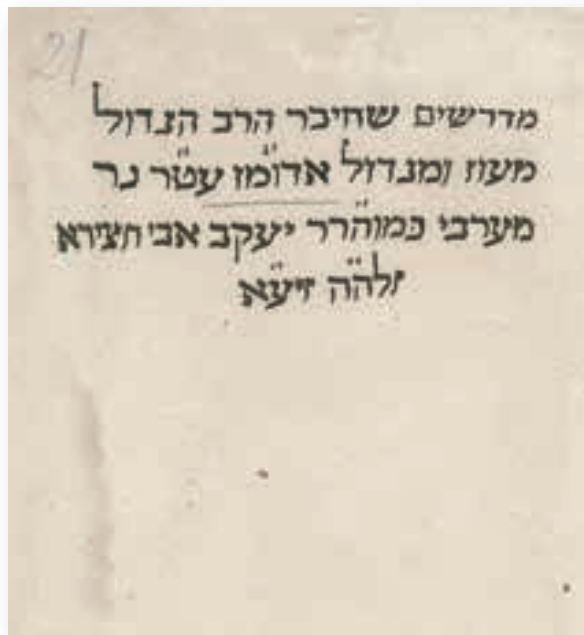 21
מדרשים שחיבר הרב הגדול
מעוז ומגדול אדו״מו עט״ר נר
מערבי כמוה״רר יעקב אבי חצירא
זלה״ה זיע״א